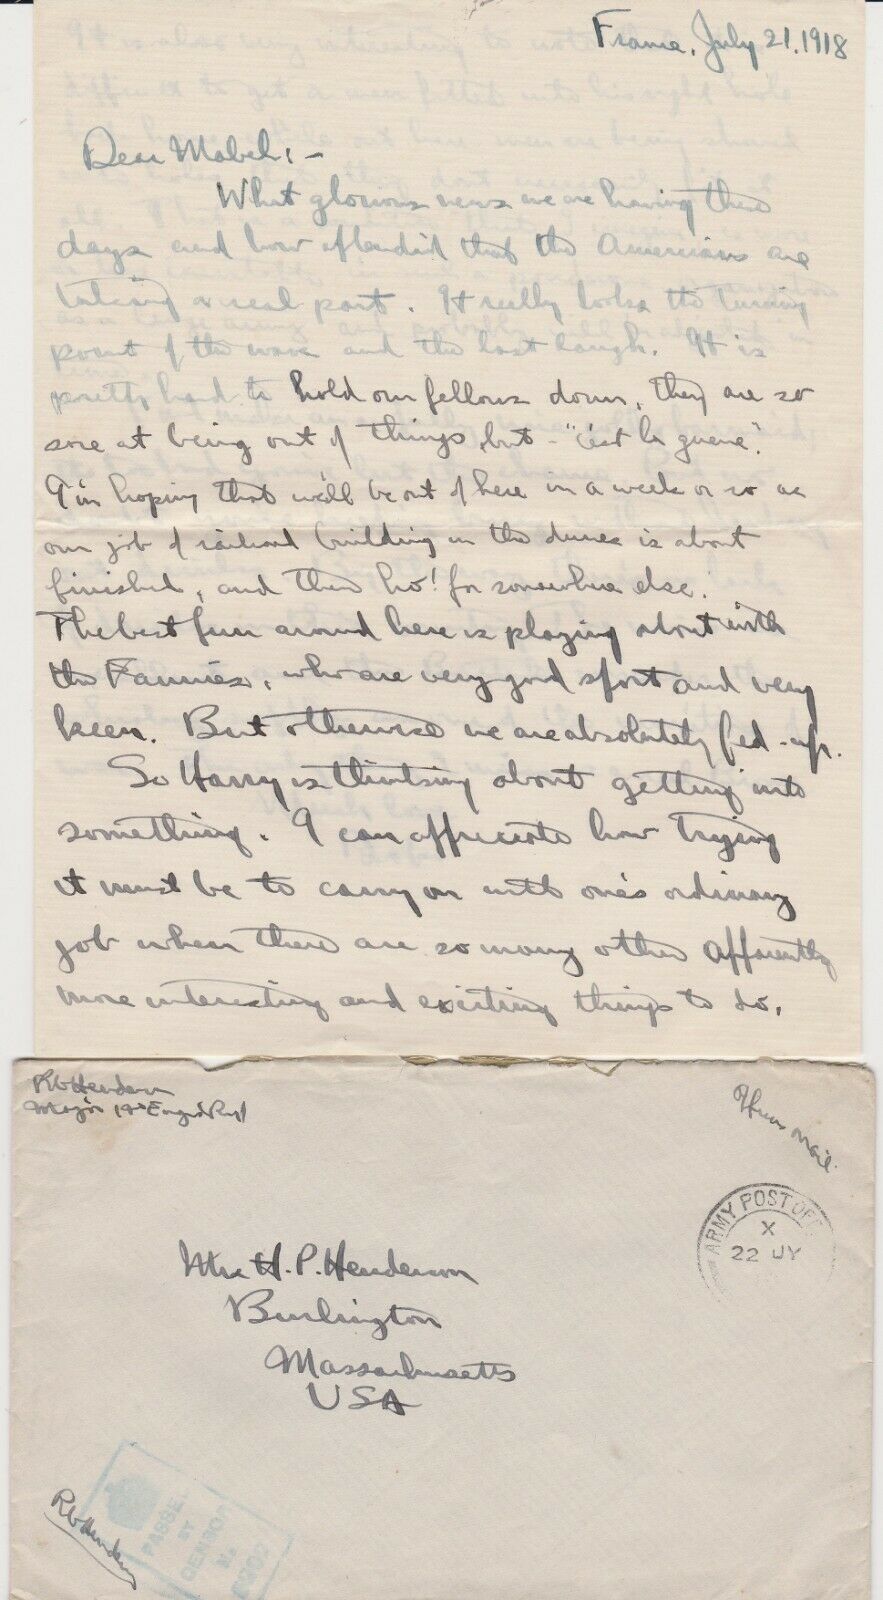 France, July 21. 1918
Dear Mabel: -
What glorious news we are having these
days and how splendid that the Americans are
taking a real part. It really looks the turning
point of the war and the last laugh. It is
pretty hard to hold our fellows down, they are so
sore at being out of things, but - "c'est la guerre".
I'm hoping that we'll be out of here in a week or so as
our job of railroad building in the dunes is about
finished, and then ho! for somewhere else.
The best fun around here is playing about with
the Fannies, who are very good sport and very
keen. But otherwise we are absolutely fed-up.
So Harry is thinking about getting into
something. I can appreciate how trying
it must be to carry on with one's ordinary
job when there are so many other apparently
more interesting and exciting things to do.
Henderson
Major Engrs
mail
ARMY POST OFF
X
22 JY
Mrs H. P. Henderson
Burlington
Massachusetts
USA
PASSED
BY
CENSOR
No
Henderson